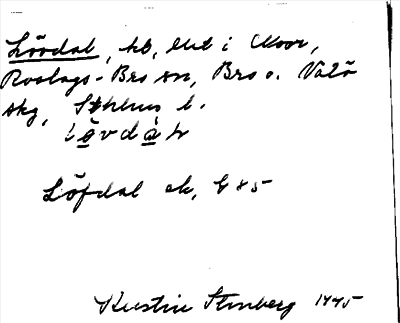 Lövdal, hb, ... i Moor,
Roslags-Bro sn, Bro o. Vätö
skg, Sthlms l.
lövdàl
Löfdal ek, G 85
Kerstin Stenberg 1945